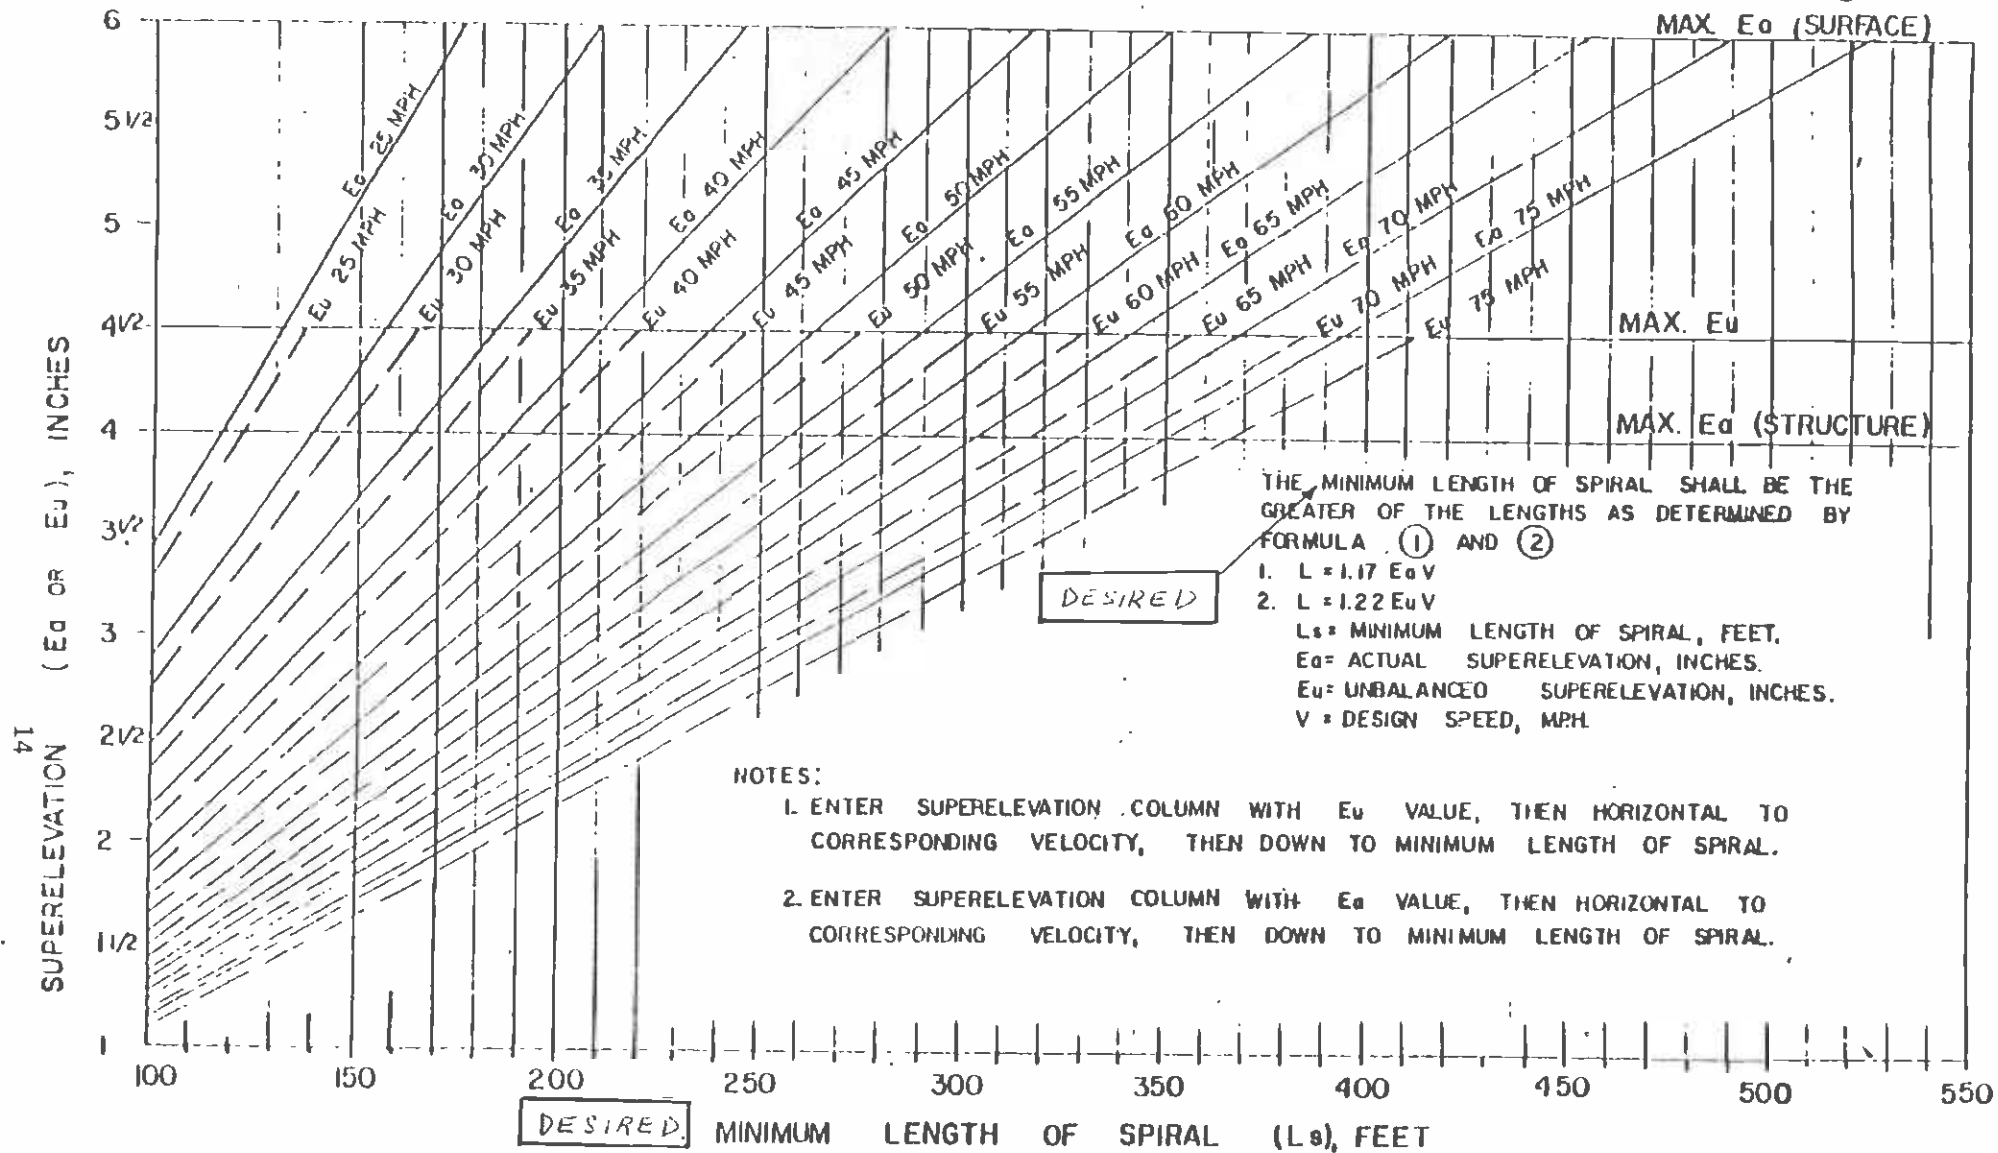 MAX. Ea (SURFACE)
6
5 1/2
5
4 1/2
4
3 1/2
3
2 1/2
2
1 1/2
1
SUPERELEVATION (Ea OR Eu), INCHES
14
Ea 25 MPH
Ea 30 MPH
Ea 35 MPH
Ea 40 MPH
Ea 45 MPH
Ea 50 MPH
Ea 55 MPH
Ea 60 MPH
Ea 65 MPH
Ea 70 MPH
Ea 75 MPH
Eu 25 MPH
Eu 30 MPH
Eu 35 MPH
Eu 40 MPH
Eu 45 MPH
Eu 50 MPH
Eu 55 MPH
Eu 60 MPH
Eu 65 MPH
Eu 70 MPH
Eu 75 MPH
MAX. Eu
MAX. Ea (STRUCTURE)
THE MINIMUM LENGTH OF SPIRAL SHALL BE THE
GREATER OF THE LENGTHS AS DETERMINED BY
FORMULA 1 AND 2
DESIRED
1. L = 1.17 Ea V
2. L = 1.22 Eu V
Ls = MINIMUM LENGTH OF SPIRAL, FEET.
Ea = ACTUAL SUPERELEVATION, INCHES.
Eu = UNBALANCED SUPERELEVATION, INCHES.
V = DESIGN SPEED, MPH.
NOTES:
1. ENTER SUPERELEVATION COLUMN WITH Eu VALUE, THEN HORIZONTAL TO
CORRESPONDING VELOCITY, THEN DOWN TO MINIMUM LENGTH OF SPIRAL.
2. ENTER SUPERELEVATION COLUMN WITH Ea VALUE, THEN HORIZONTAL TO
CORRESPONDING VELOCITY, THEN DOWN TO MINIMUM LENGTH OF SPIRAL.
100 150 200 250 300 350 400 450 500 550
DESIRED MINIMUM LENGTH OF SPIRAL (Ls), FEET